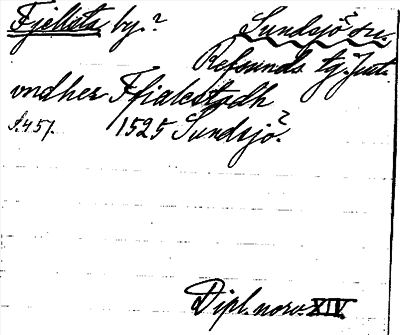 Fjellsta by.? Sundsjö? sn.
Refsunds tg. Jmt.
vndher Ffialestadh
s. 457. 1525 Sundsjö?
Dipl. norv. XIV.